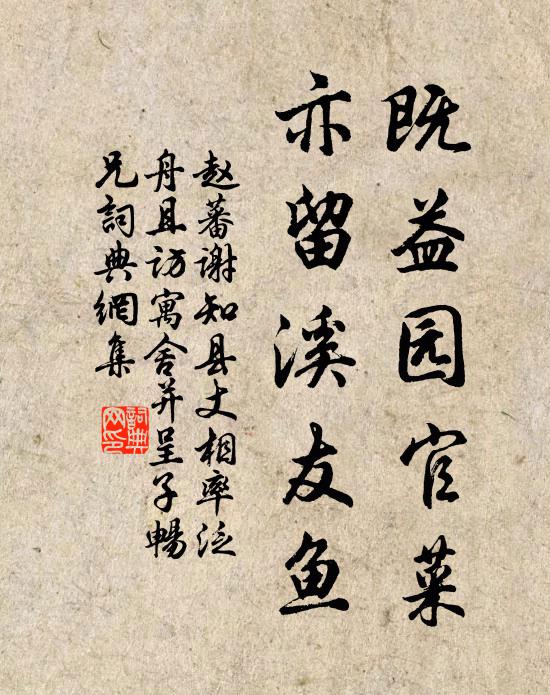 既益园官菜
亦留溪友鱼
赵蕃谢知县丈相率泛
舟且访寓舍并呈子暢
兄詞典網集
詞典
网印